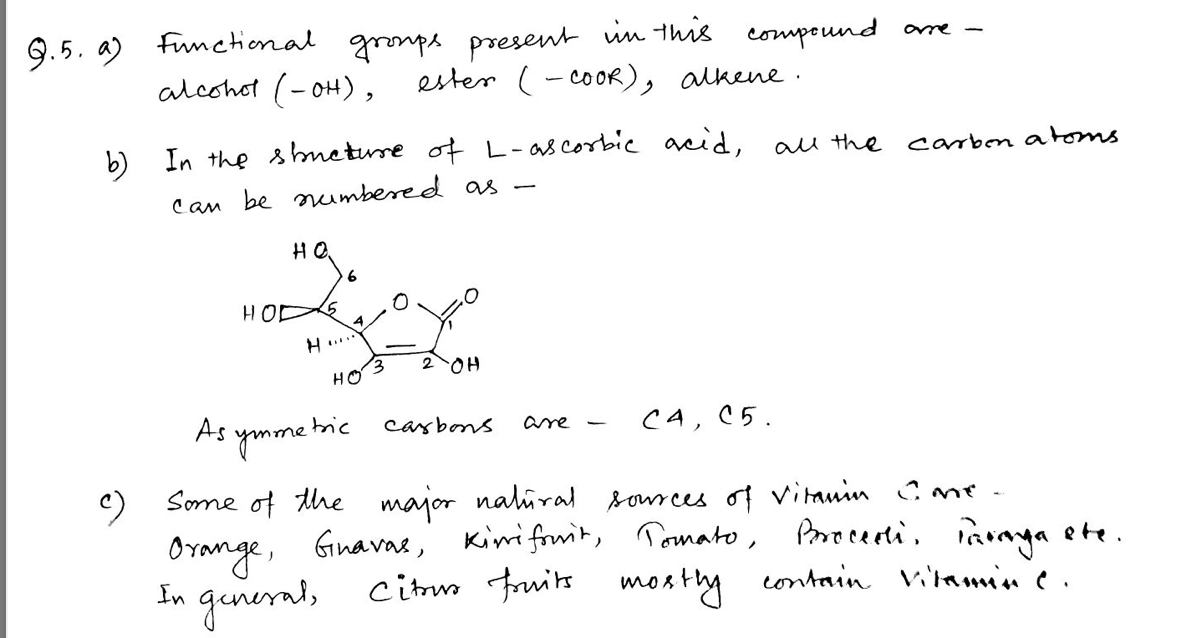 Q.5. a) Functional groups present in this compound are -
alcohol (-OH), ester (-COOR), alkene.
b) In the structure of L-ascorbic acid, all the carbon atoms
can be numbered as -
HO
6
HO 5 O O
4 1
H
HO 3 2 OH
Asymmetric carbons are - C4, C5.
c) Some of the major natural sources of vitamin C are -
Orange, Guavas, Kiwifruit, Tomato, Broccoli, Papaya etc.
In general, Citrus fruits mostly contain Vitamin C.